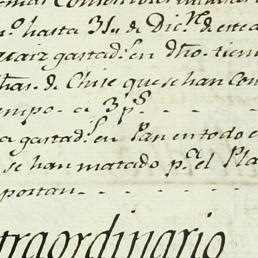 hasta 31,, de Dic.^e de este a
gastad.^s en dho tiem
de Chile que se han Con
empo - a 3 p.^s
gastad.^s en Pan en todo e
se han matado p.^a el Pla
portan - - - - -
traordinario